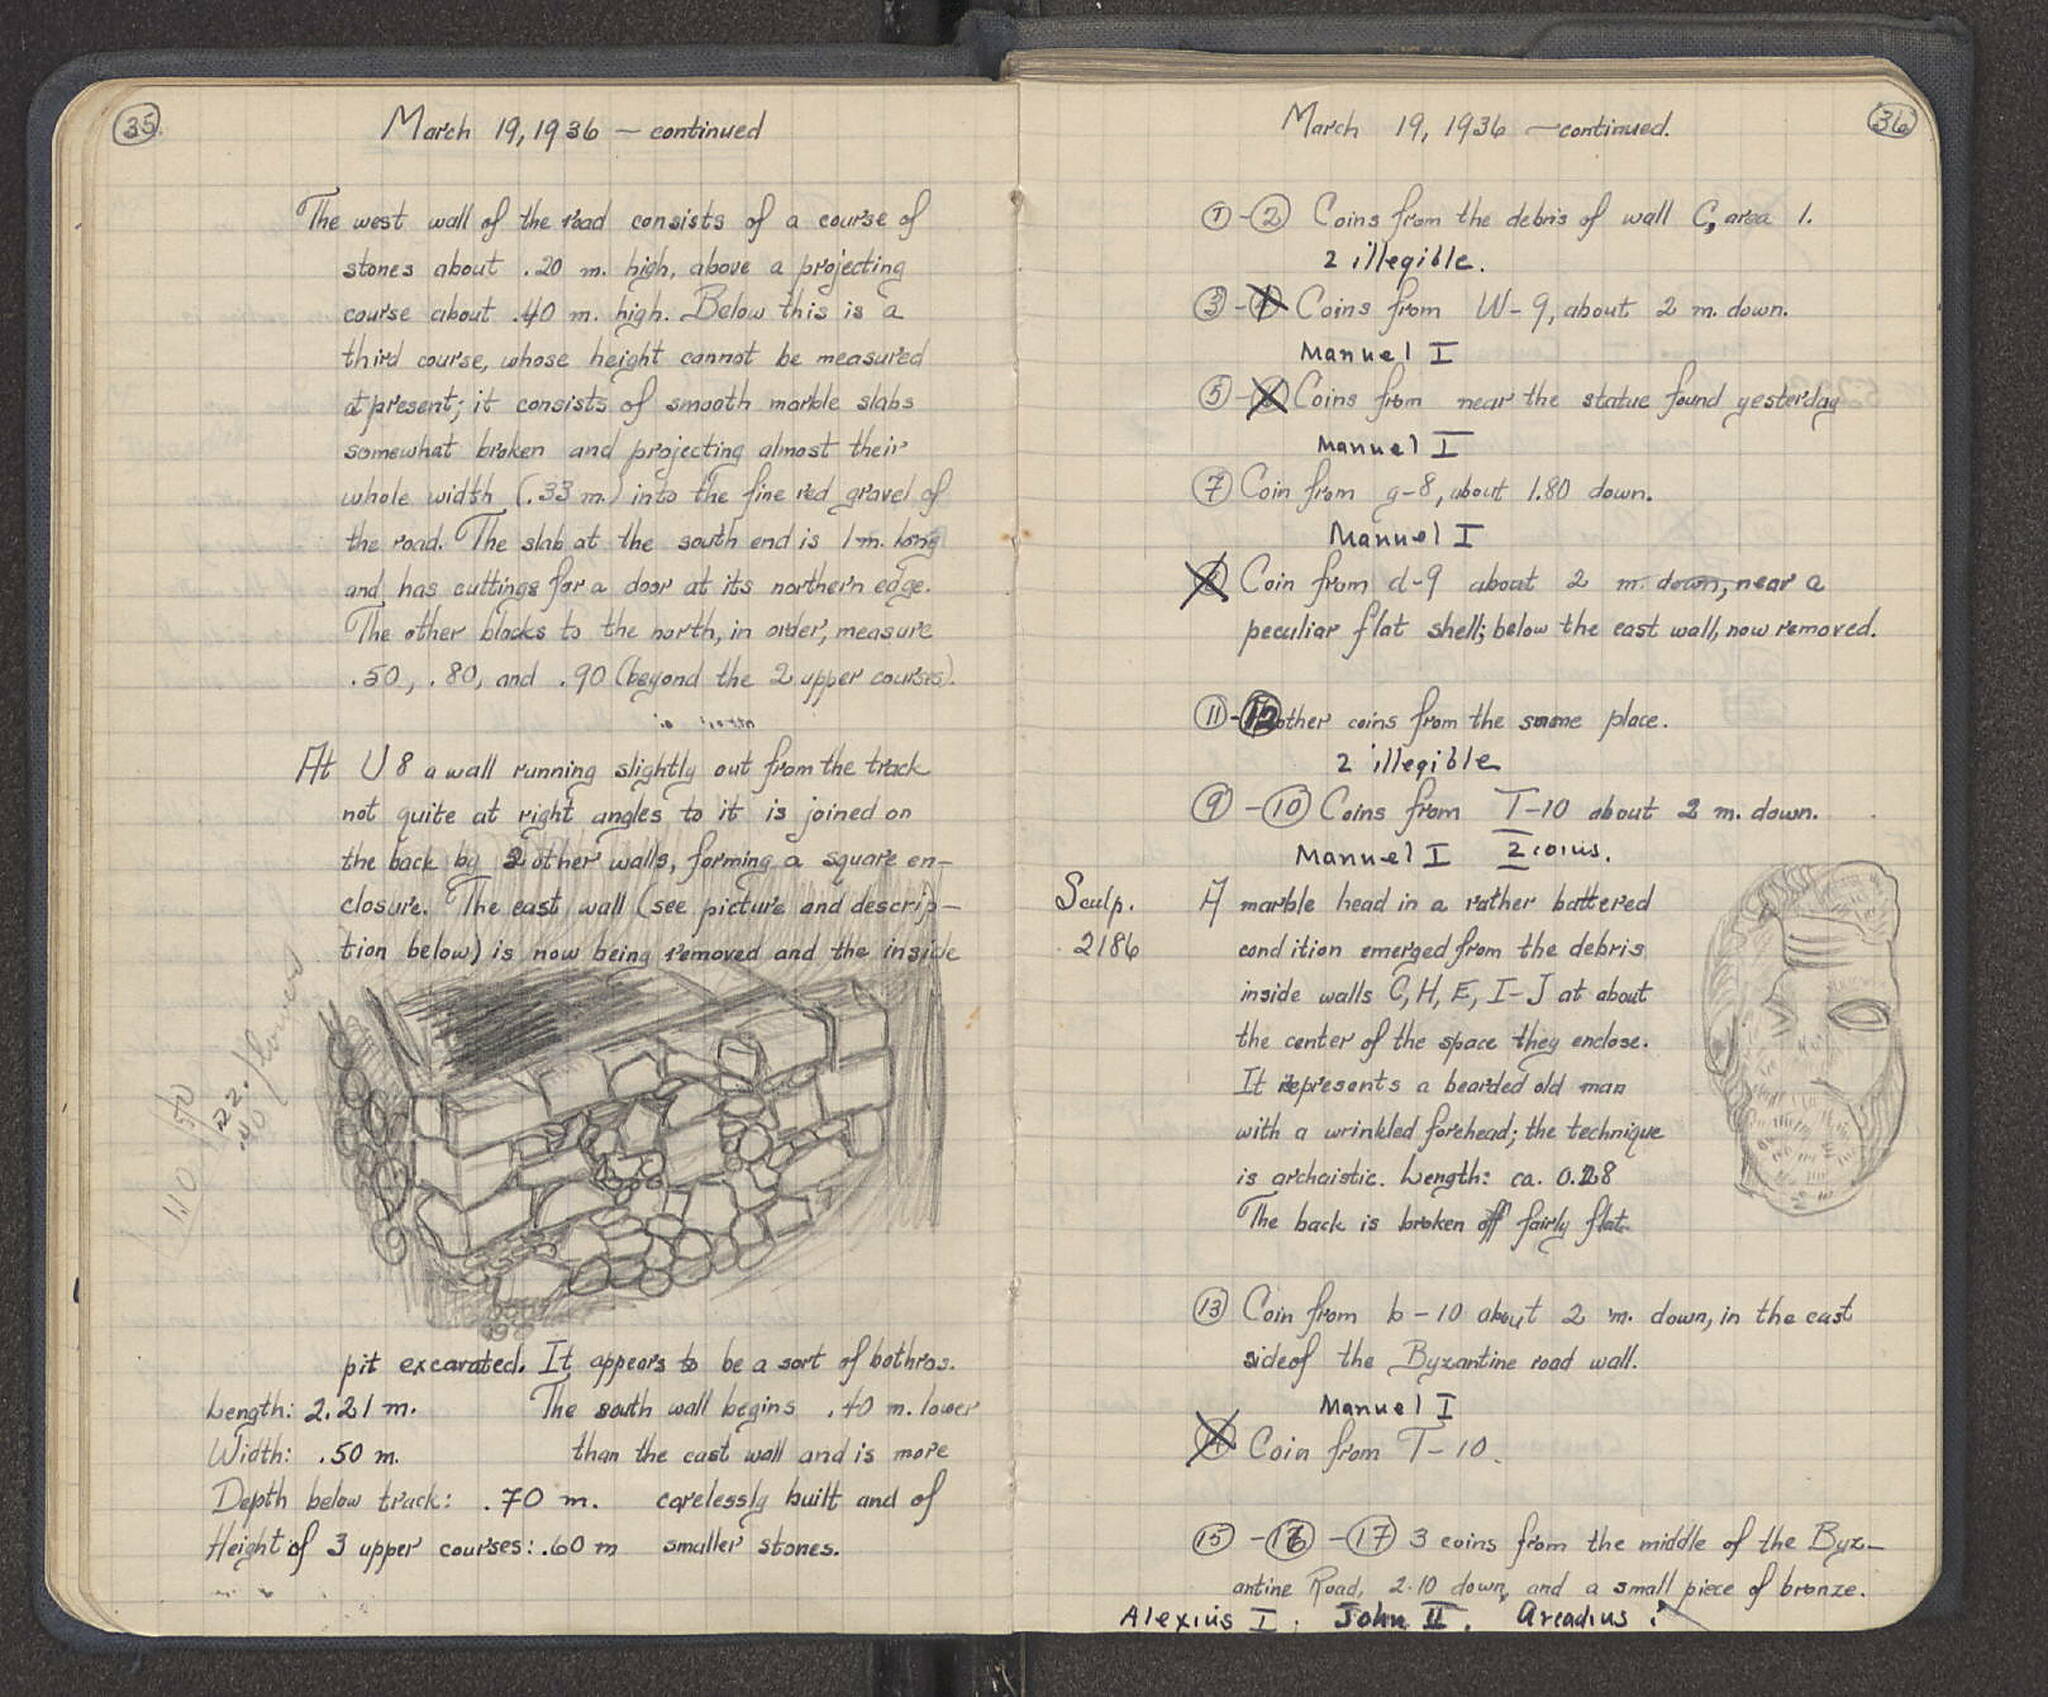 35
March 19, 1936 — continued
The west wall of the road consists of a course of
stones about .20 m. high, above a projecting
course about .40 m. high. Below this is a
third course, whose height cannot be measured
at present; it consists of smooth marble slabs
somewhat broken and projecting almost their
whole width (.33 m.) into the fine red gravel of
the road. The slab at the south end is 1 m. long
and has cuttings for a door at its northern edge.
The other blocks to the north, in order, measure
.50, .80, and .90 (beyond the 2 upper courses).
At U 8 a wall running slightly out from the track
not quite at right angles to it is joined on
the back by 2 other walls, forming a square en-
closure. The east wall (see picture and descrip-
tion below) is now being removed and the inside
1.50
1.22. / lower
.40
1.10
pit excavated. It appears to be a sort of bothros.
Length: 2.21 m. The south wall begins .40 m. lower
Width: .50 m. than the east wall and is more
Depth below track: .70 m. carelessly built and of
Height of 3 upper courses: .60 m smaller stones.
36
March 19, 1936 — continued.
1 - 2 Coins from the debris of wall C, area 1.
2 illegible.
3 - 4 Coins from W-9, about 2 m. down.
Manuel I
5 - 6 Coins from near the statue found yesterday
Manuel I
7 Coin from g-8, about 1.80 down.
Manuel I
8 Coin from d-9 about 2 m. down, near a
peculiar flat shell; below the east wall, now removed.
11 - 12 other coins from the same place.
2 illegible
9 - 10 Coins from T-10 about 2 m. down.
Manuel I 2 coins.
Sculp.
2186
A marble head in a rather battered
condition emerged from the debris
inside walls C, H, E, I-J at about
the center of the space they enclose.
It represents a bearded old man
with a wrinkled forehead; the technique
is archaistic. Length: ca. 0.28
The back is broken off fairly flat.
13 Coin from b-10 about 2 m. down, in the east
side of the Byzantine road wall.
Manuel I
14 Coin from T-10.
15 - 16 - 17 3 coins from the middle of the Byz-
antine Road, 2.10 down, and a small piece of bronze.
Alexius I. John II. Arcadius.